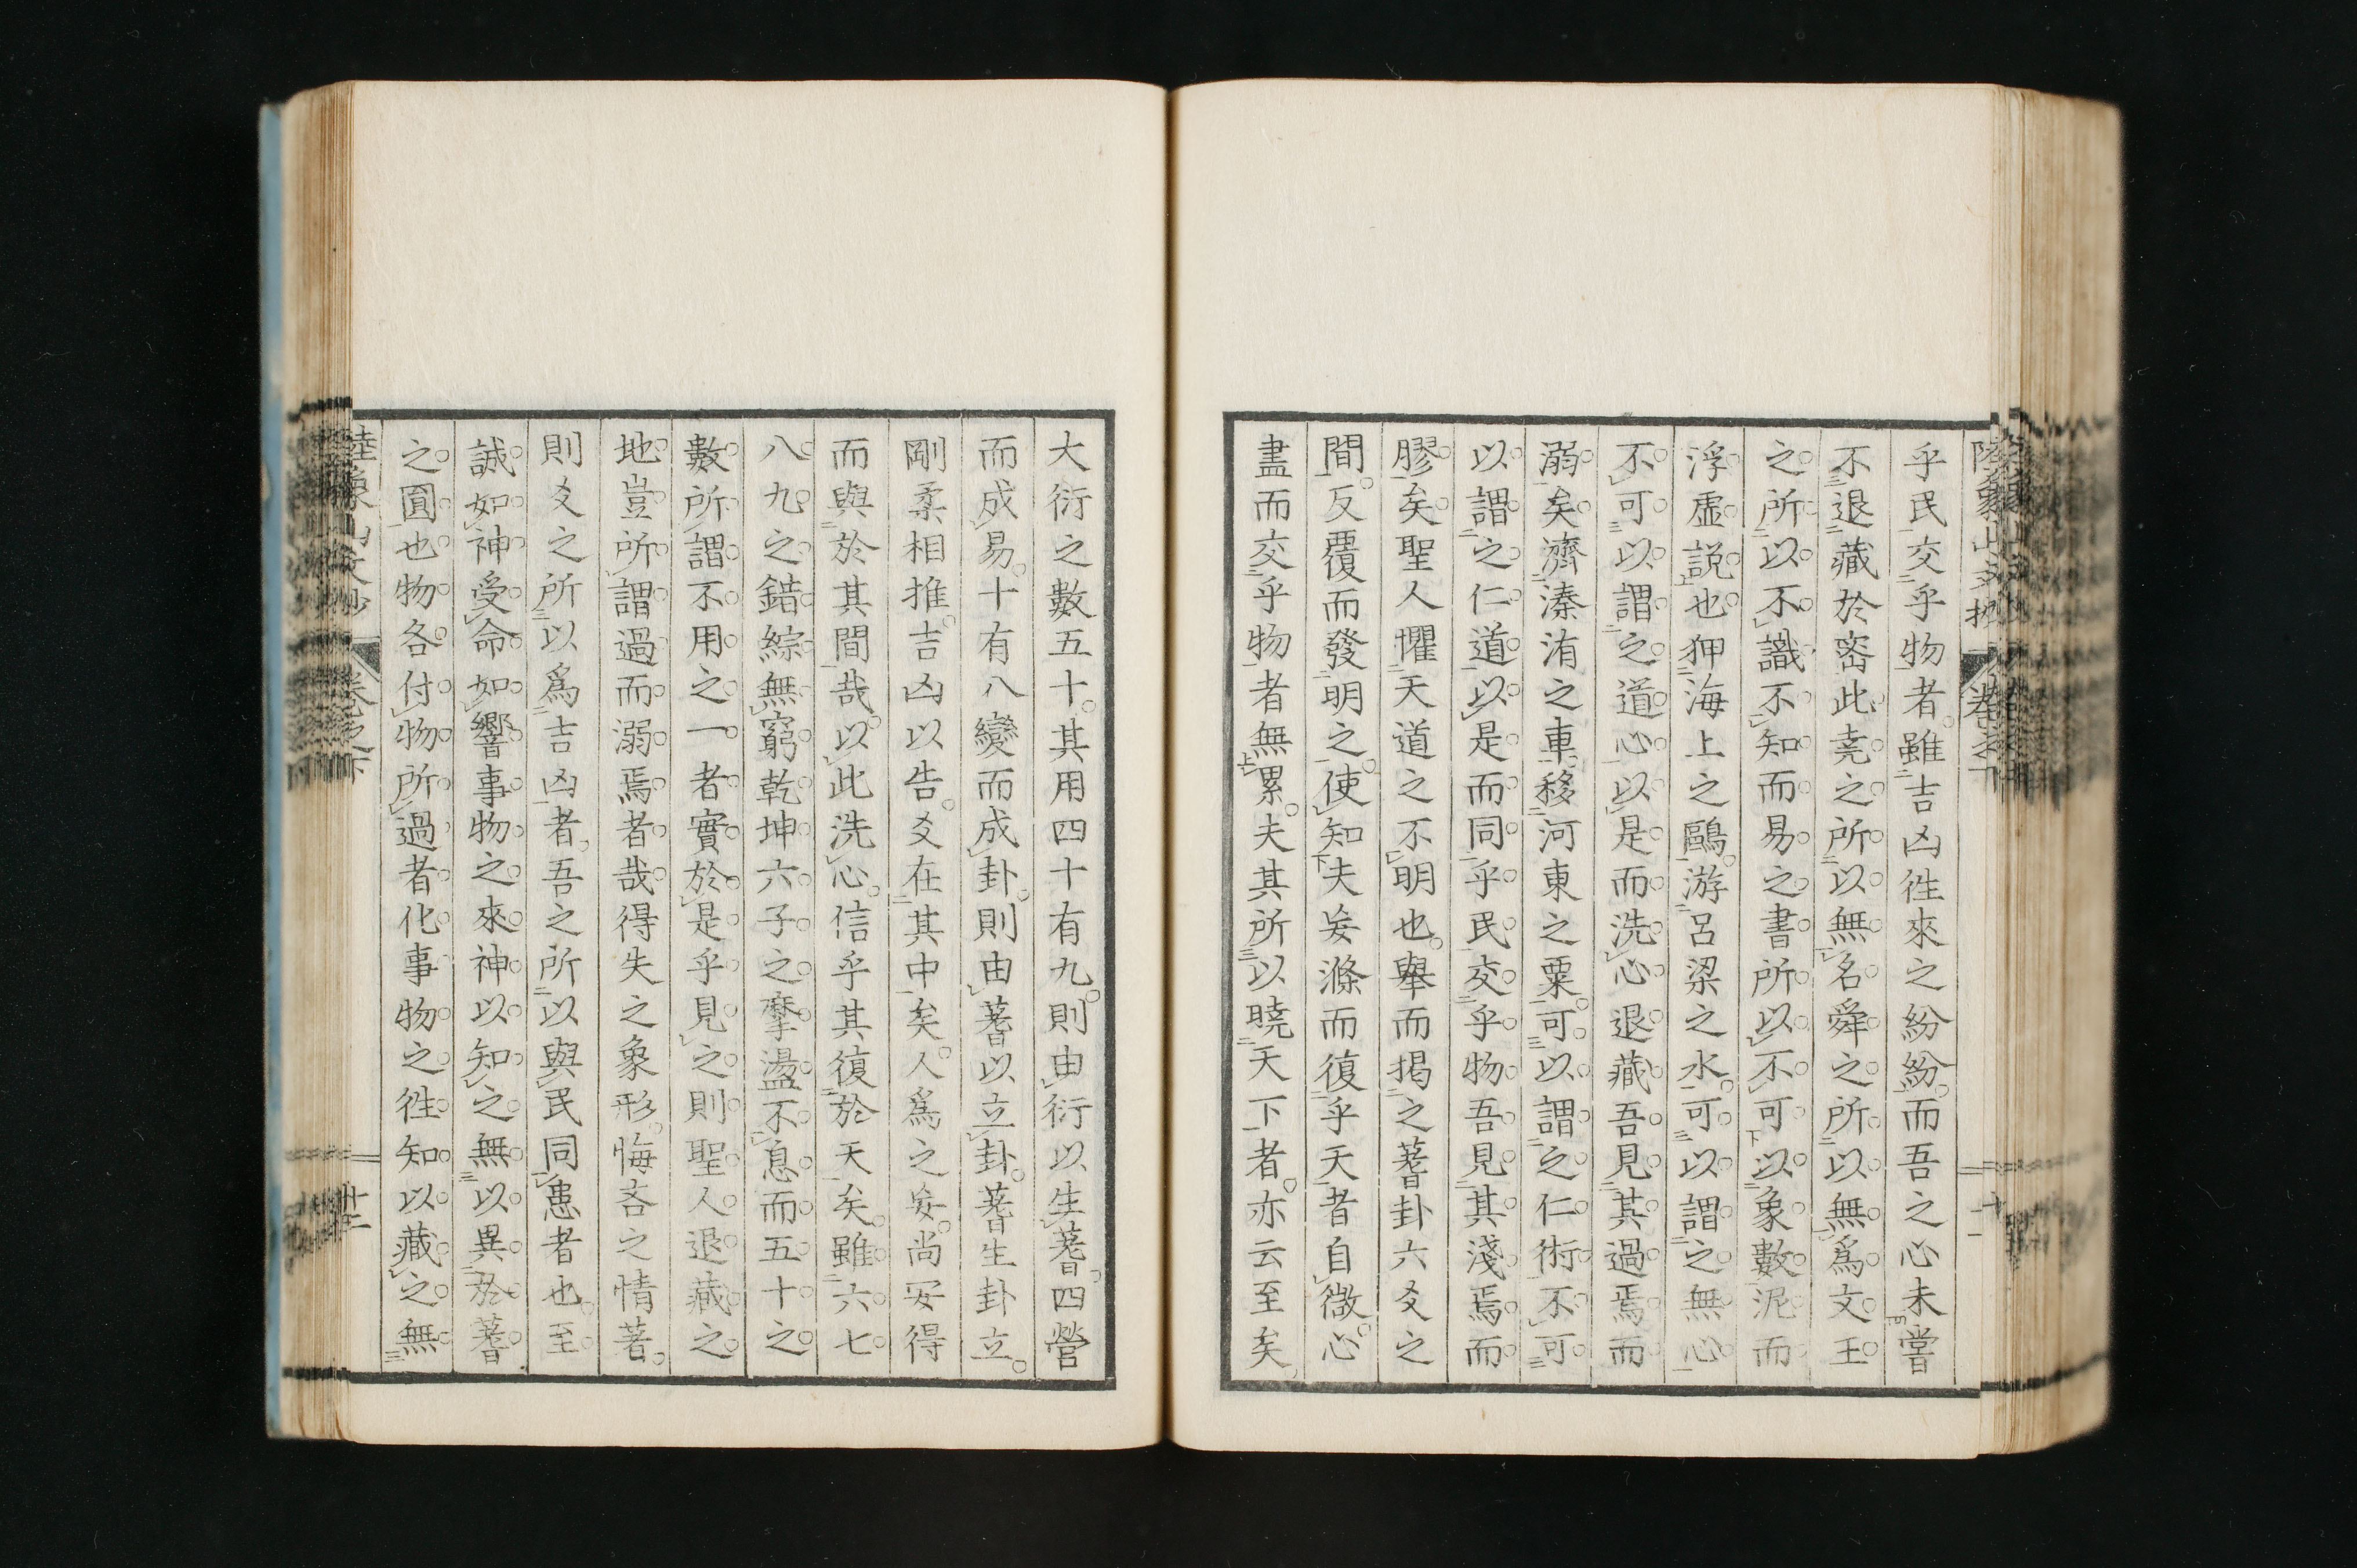 乎民交乎物者雖吉凶徃來之紛紛而吾之心未嘗
不退藏於密此堯之所以無名舜之所以無爲文王
之所以不識不知而易之書所以不可以象數泥而
浮虛說也狎海上之鷗游呂梁之水可以謂之無心
不可以謂之道心以是而洗心退藏吾見其過焉而
溺矣濟溱洧之車移河東之粟可以謂之仁術不可
以謂之仁道以是而同乎民交乎物吾見其淺焉而
膠矣聖人懼天道之不明也舉而揭之蓍卦六爻之
間反覆而發明之使知夫妄滌而復乎天者自微心
盡而交乎物者無累夫其所以曉天下者亦云至矣
大衍之數五十其用四十有九則由衍以生蓍四營
而成易十有八變而成卦則由蓍以立卦蓍生卦立
剛柔相推吉凶以告爻在其中矣人爲之妄尚安得
而與於其間哉以此洗心信乎其復於天矣雖六七
八九之錯綜無窮乾坤六子之摩盪不息而五十之
數所謂不用之一者實於是乎見之則聖人退藏之
地豈所謂過而溺焉者哉得失之象形悔吝之情著
則爻之所以爲吉凶者吾之所以與民同患者也至
誠如神受命如響事物之來神以知之無以異於蓍
之圓也物各付物所過者化事物之徃知以藏之無
陸象山文抄
卷之下
十二